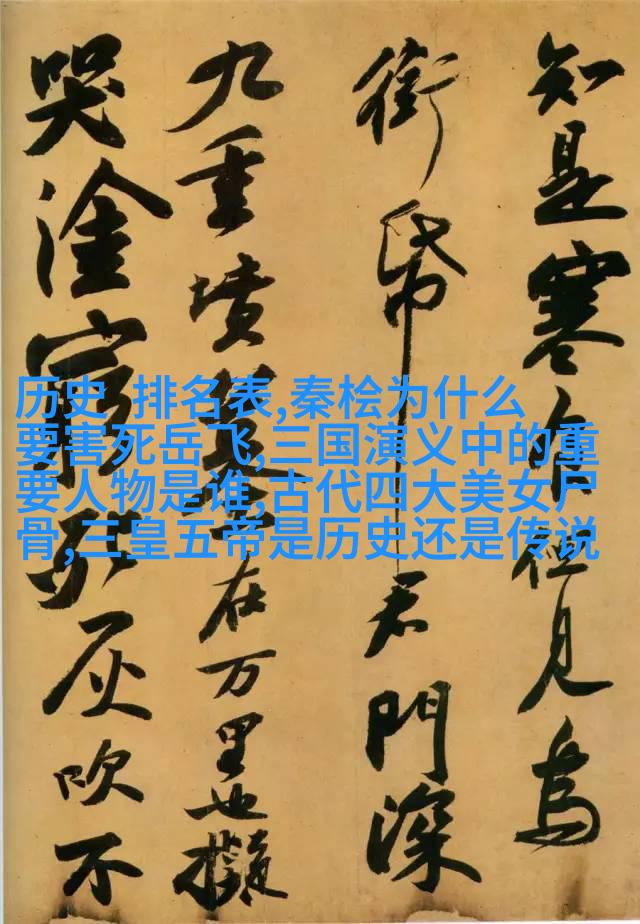 历史 排名表,秦桧为什么
要害死岳飞,三国演义中的重
要人物是谁,古代四大美女尸
骨,三皇五帝是历史还是传说
知是寒食但見烏
銜帋君門深
九重墳墓在万里也擬
哭塗窮死灰吹不